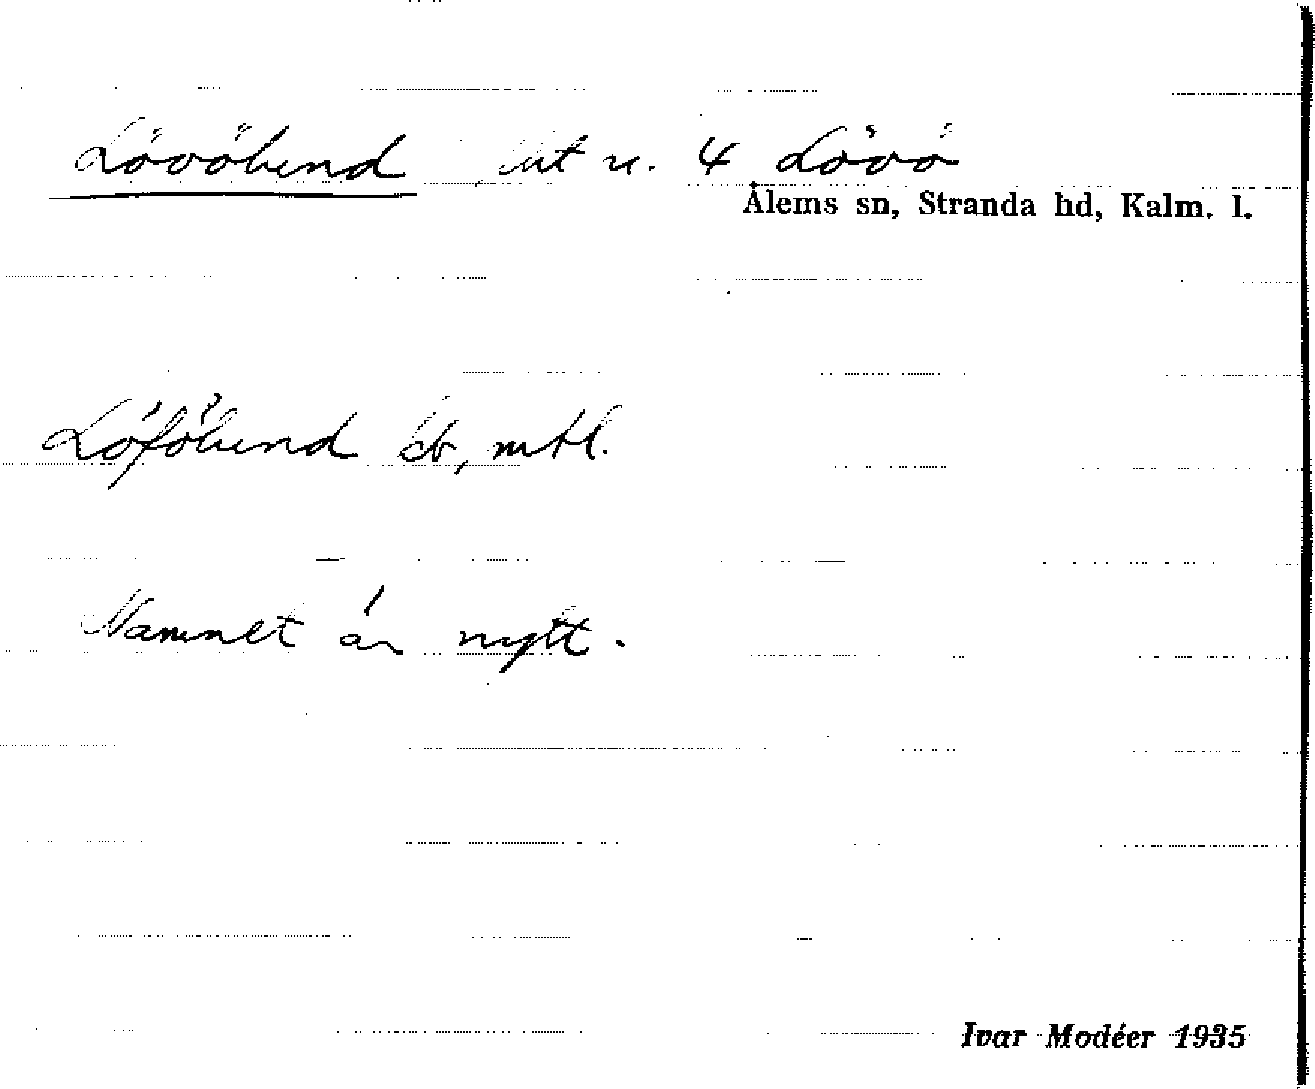 Lövölund, lht u. 4 Lövö
Ålems sn, Stranda hd, Kalm. l.
Löfölund kb, mtl.
Namnet är nytt.
Ivar Modéer 1935